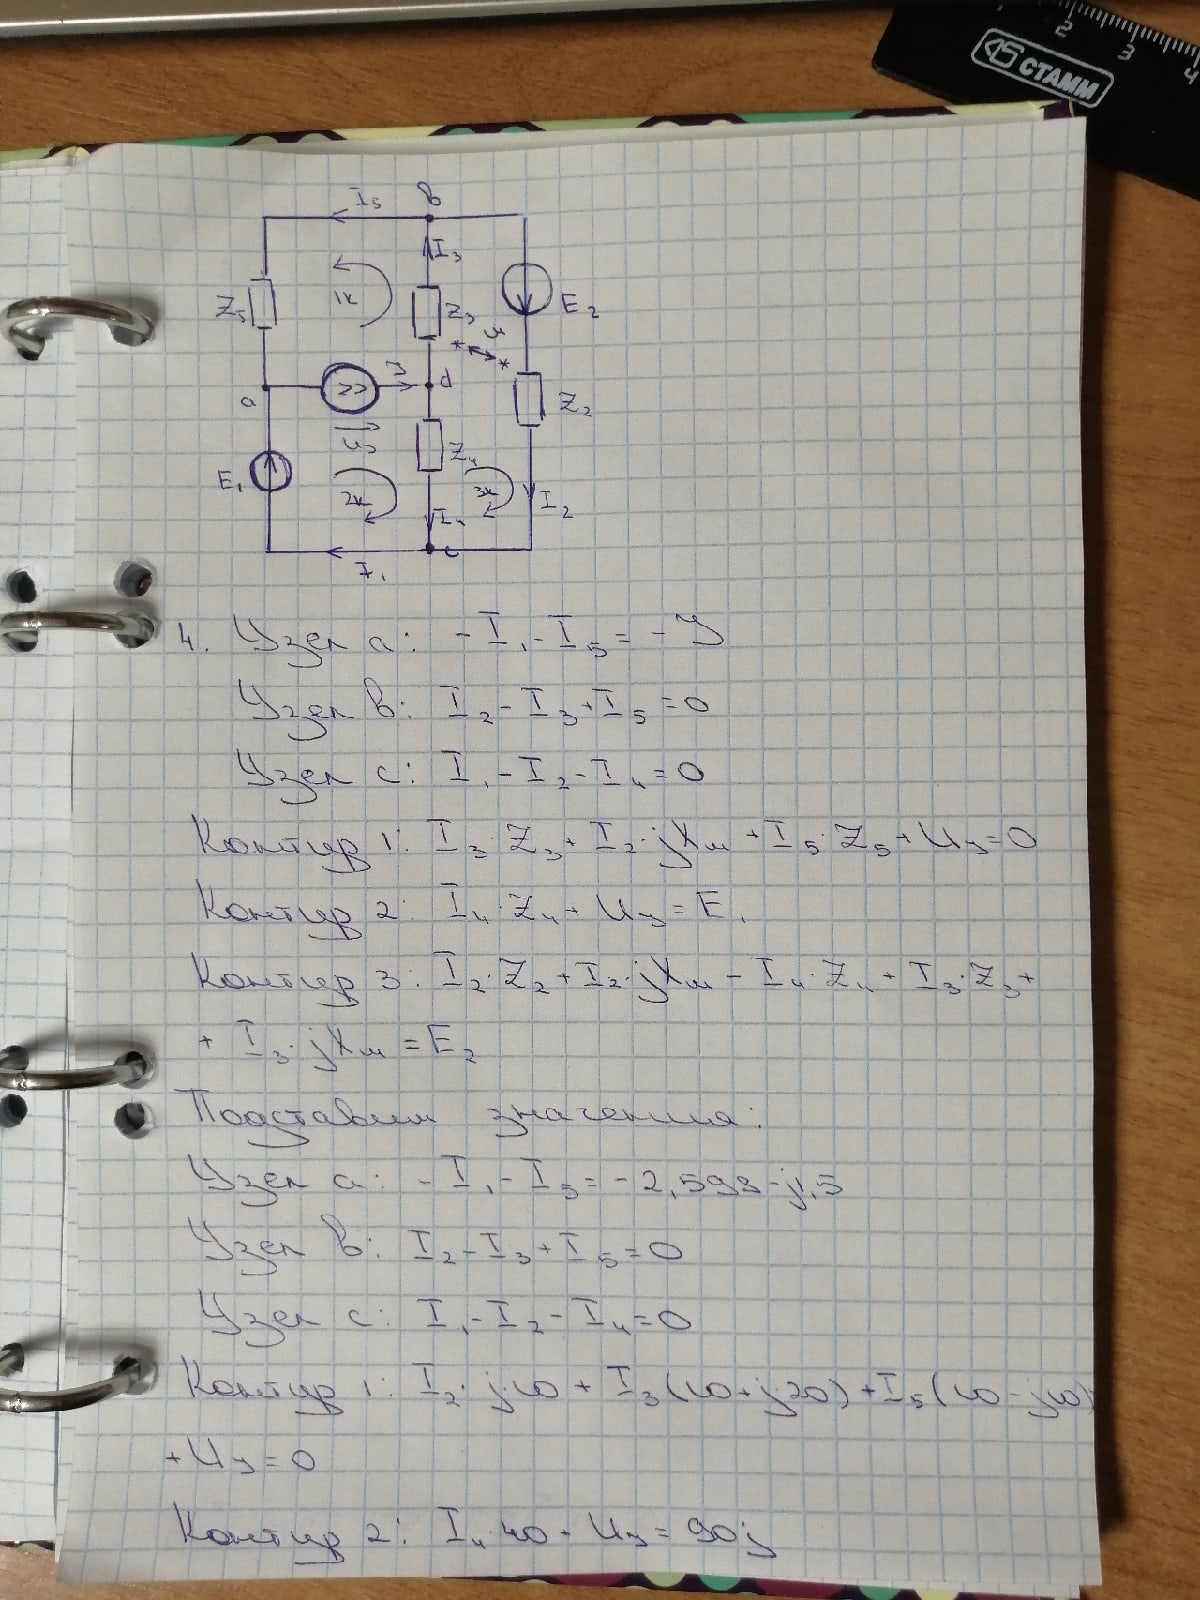 2
3
4
СТАММ
I₅
b
I₃
1к
Z₅
Z₃
E₂
м
*
*
J
d
a
Z₂
U_J
Z₄
E₁
2к
3к
I₄
I₂
c
I₁
4. Узел a: -I₁-I₅=-J
Узел b: I₂-I₃+I₅=0
Узел c: I₁-I₂-I₄=0
Контур 1: I₃·Z₃+I₂·jXм+I₅·Z₅+U_J=0
Контур 2: I₄·Z₄+U_J=E₁
Контур 3: I₂·Z₂+I₂·jXм-I₄·Z₄+I₃·Z₃+
+ I₃·jXм=E₂
Подставим значения:
Узел a: -I₁-I₅=-2,598-j1,5
Узел b: I₂-I₃+I₅=0
Узел c: I₁-I₂-I₄=0
Контур 1: I₂·j10+I₃(10+j20)+I₅(10-j10)
+U_J=0
Контур 2: I₄·40-U_J=90j